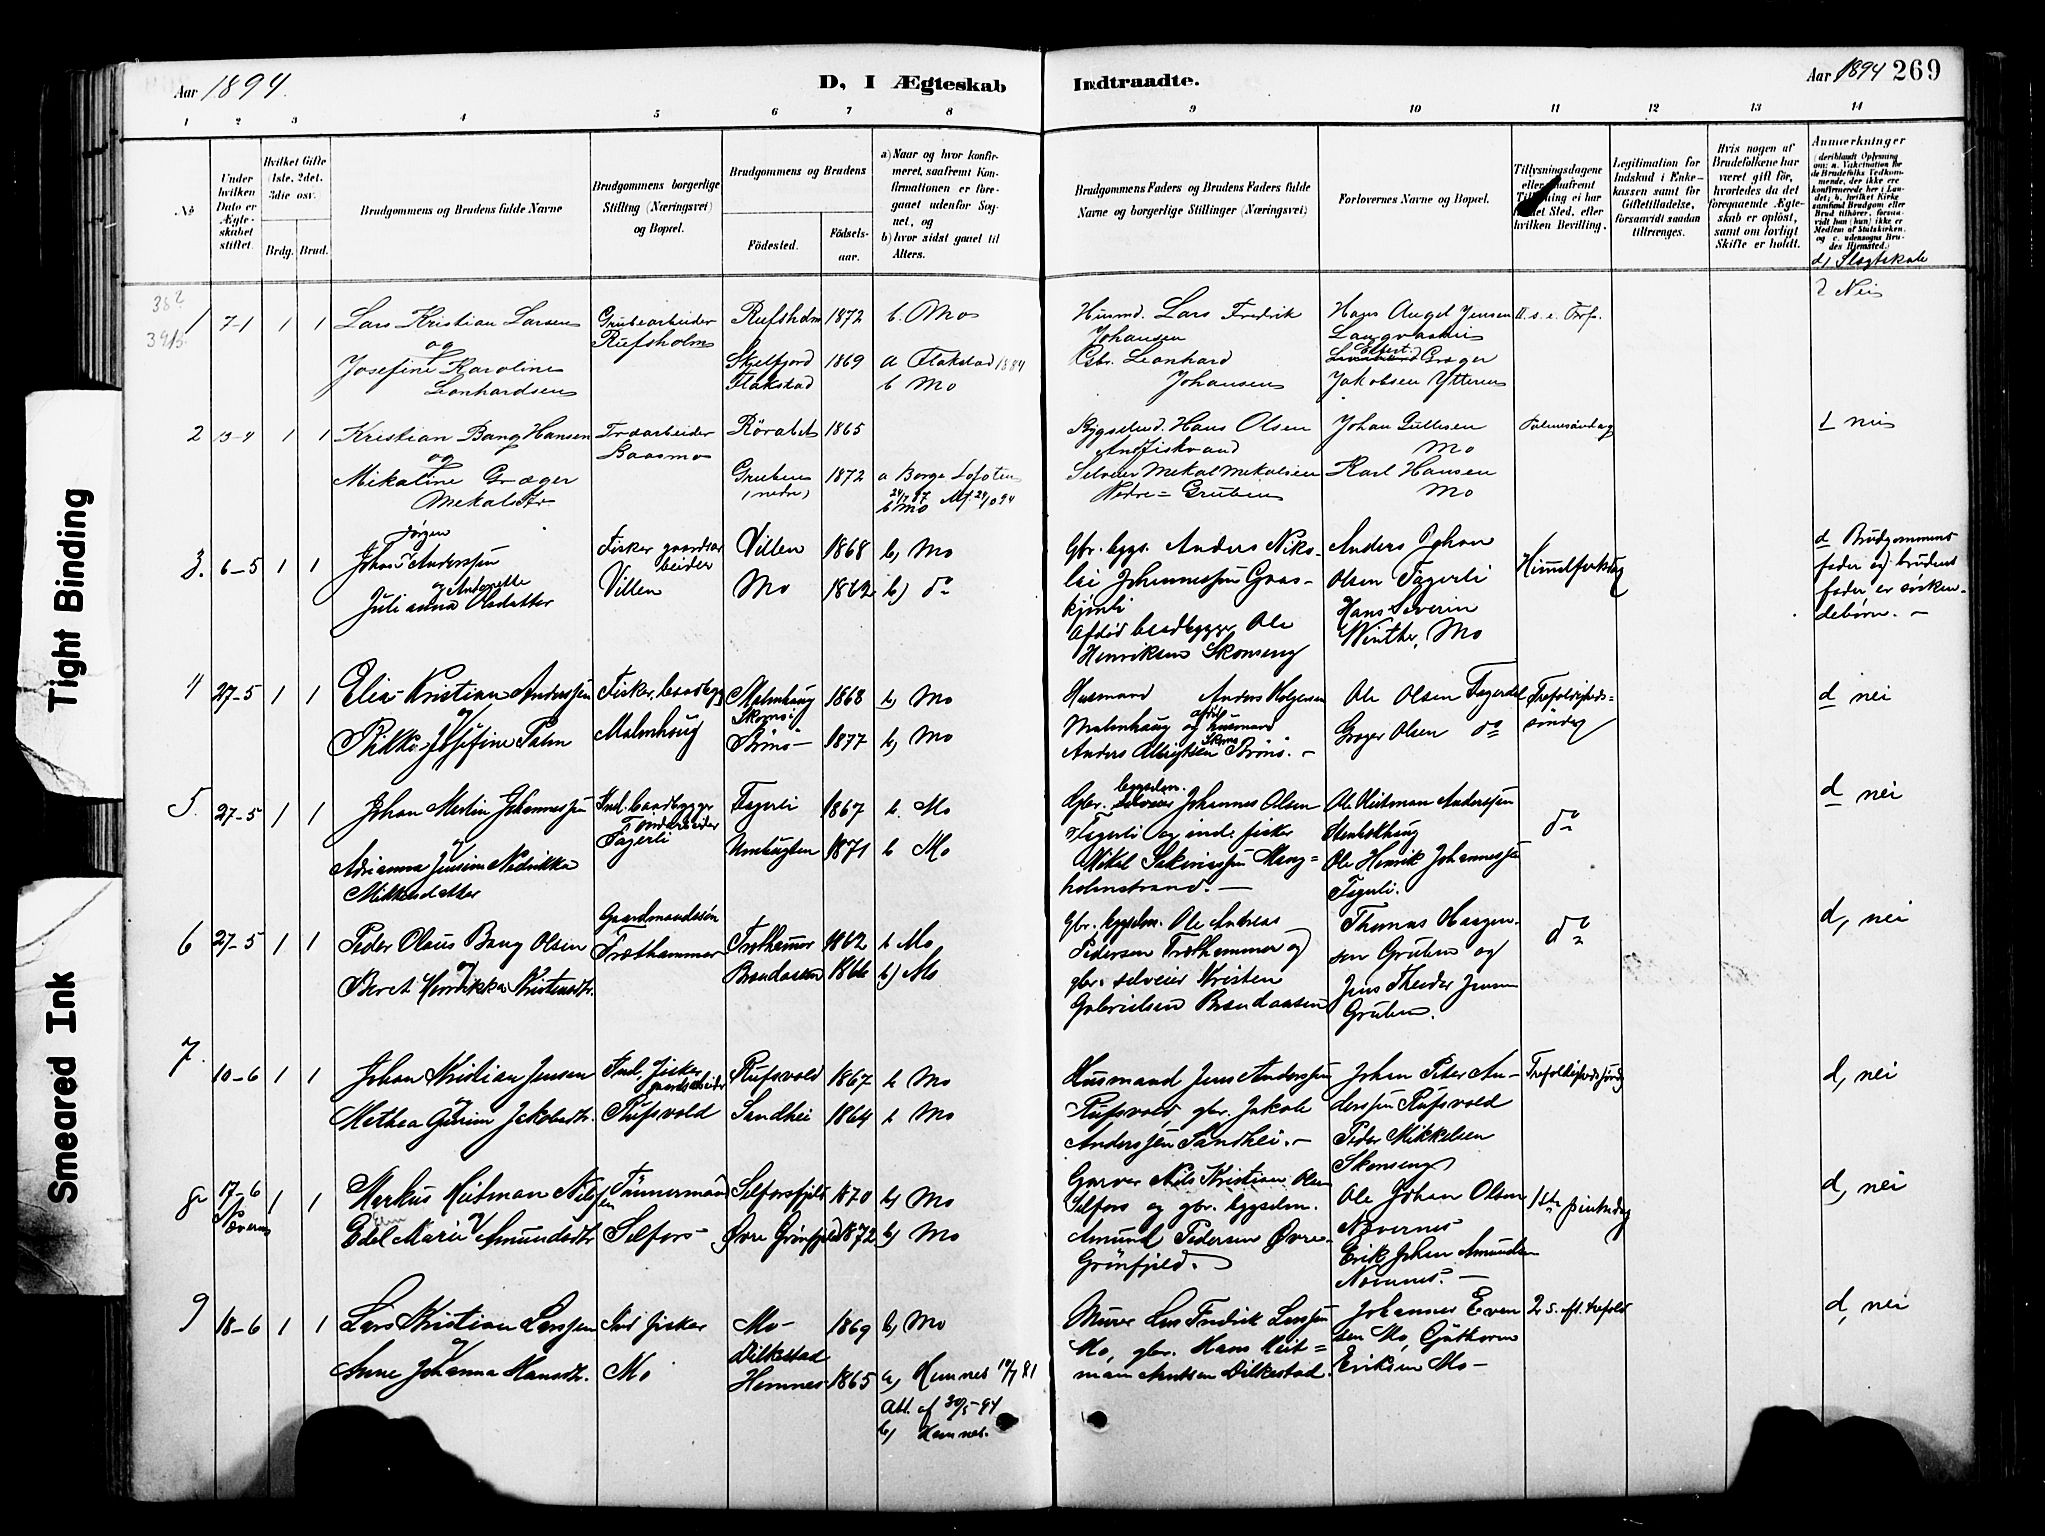 Aar 1894.
D, I Ægteskab Indtraadte.
Aar 1894 269
1 2 3 4 5 6 7 8 9 10 11 12 13 14
No
Under hvilken Dato er Ægteskabet stiftet.
Hvilket Gifte (1ste, 2det, 3die osv.
Brdg. Brud.
Brudgommens og Brudens fulde Navne
Brudgommens borgerlige Stilling (Næringsvei) og Bopæl.
Brudgommens og Brudens
Födested. Födselsaar.
a) Naar og hvor konfirmeret, saafremt Konfirmationen er foregaaet udenfor Sognet, og
b) hvor sidst gaaet til Alters.
Brudgommens Faders og Brudens Faders fulde Navne og borgerlige Stillinger (Næringsvei)
Forlovernes Navne og Bopæl.
Tillysningsdagene eller saafremt Tillysning ei har fundet Sted, efter hvilken Bevilling.
Legitimation for Indskud i Enkekassen samt for Giftetilladelse, forsaavidt saadan tiltrænges.
Hvis nogen af Brudefolkene har været gift før, hvorledes da det foregaaende Ægteskab er opløst, samt om lovligt Skifte er holdt.
Anmærkninger
(deriblandt Oplysning om: a. Vakcination for de Brudefolks Vedkommende, der ikke ere konfirmerede her i Landet; b. hvilket Kirkesamfund Brudgom eller Brud tilhører, forsaavidt han (hun) ikke er Medlem af Statskirken, og c. udensogns Brudes Hjemsted.)
d, Slegtskab
1 7-1 1 1 Lars Kristian Larsen Grubearbeider Rufsholm 1872 b. Mo
og Rufsholm
Josefine Karoline Skjelfjord 1869 a Flakstad 1884
Leonhardsen Flakstad b Mo
Husmd. Lars Fredrik Hans Angel Jensen II. s. e. Trof. Nei
Johansen Langvasmi
Gbr. Leonhard Elbert Grøger
Johansen Jakobsen Ytteren
2 13-4 1 1 Kristian Bang Hansen Rörabet 1865
og Baasmo
Mikaline Grøger Gruben 1872 a Borge Lofoten
Mekalsdtr. (nedre) b Mo
Bygselmd. Hans Olsen Johan Gullesen Palmesöndag nei
Andfiskvand Mo
Selveier Mekal Mekalsen Karl Hansen
Nedre=Gruben Mo
3. 6-5 1 1 Johan Jørgen Anderssen Fisker gaardsarbeider Villen 1868 b) Mo
og
Julianna Anderette Olsdatter Villen Mo 1862 b) do
Gbr. bygs. Anders Nikolai Johannessen Graaskjønli
Afdød baadbygger Ole Henriksen Skonseng
Anders Johan Olsen Fagerli
Hans Severin Winther, Mo
Himmelfartsdag
d Brudgommens fader og brudens fader er söskendebörn. -
4 27-5 1 1 Elias Kristian Anderssen Fisker, baadbygg Malmhaug 1868 b) Mo
og Skoms:
Rikke Josefine Palm Malmhoug Brönö- 1877 b) Mo
Husmand Anders Holgersen
Malmhaug og afdöd husmand
Anders Albrigtsen Brönö. -
Ole Olsen Fagerdal Trefoldigheds-
Grøger Olsen do söndag
d nei
5. 27-5 1 1 Johan Martin Johannessen Ind. baadbygger Fagerli 1867 b. Mo
og Fagerli
Adrianna Jensine Nedrikka Umbugten 1871 b Mo
Mikkelsdatter
Gbr. bygselm. Johannes Olsen
Fagerli og ind. fisker
Mikal Sakariassen Mang=
holmstrand. -
Ole Heitman Anderssen
Stenbækhaug
Ole Henrik Johannessen
Fagerli.
do
d nei
6 27-5 1 1 Peder Olaus Bang Olsen Gaardmandssön Træthammer 1862 b Mo
og Træthammer
Beret Hendrikka Kristensdtr. Brandaasen 1866 b) Mo
Gbr. bygselm. Ole Andreas
Pedersen Træthammer og
gbr. selveier Kristen
Gabrielsen Brandaasen
Thomas Haagensen Gruben og
Jens Theodor Jensen
Gruben.
do
d, nei
7. 10-6 1 1 Johan Kristian Jensen Ind. fisker gaardsarbeider Rufsvold 1867 b Mo
og
Methea Gurine Jakobsdtr. Rufsvold Sandhei 1864 b Mo
Husmand Jens Anderssen
Rufsvold, gbr. Jakob
Anderssen Sandhei. -
Johan Peter Anderssen Rufsvold
Peder Mikkelsen
Skonseng
Trefoldighedssöndg
d, nei
8 17-6 1 1 Markus Heitman Nilssen Tömmermand Selforsfjeld 1870 b) Mo
Nævernes og
Edel Marie Amundsdtr Selfors- Øvre Grönfjeld 1872 b) Mo
Garver Nils Kristian Olsen
Selfors og gbr. bygselm.
Amund Pedersen Øvre-
Grönfjeld.
Ole Johan Olsen
Nævernes
Erik Johan Amundsen
Nævernes. -
1ste pintsedag
d, nei
9 18-6 1 1 Lars Kristian Larssen Ind fisker Mo- 1869 b) Mo
og Dilkestad
Anne Johanna Hansdtr. Mo Hemnes 1865 a) Hemnes 10/7 81
Att. af 30/5-94
b) Hemnes.
Murer Lars Fredrik Larssen
Mo, gbr. Hans Heit=
man Arntsen Dilkestad.
Johannes Evensen Mo, Guttorm
Eriksen Mo-
2 s. eft. trefold
d, nei
Tight Binding
Smeared Ink